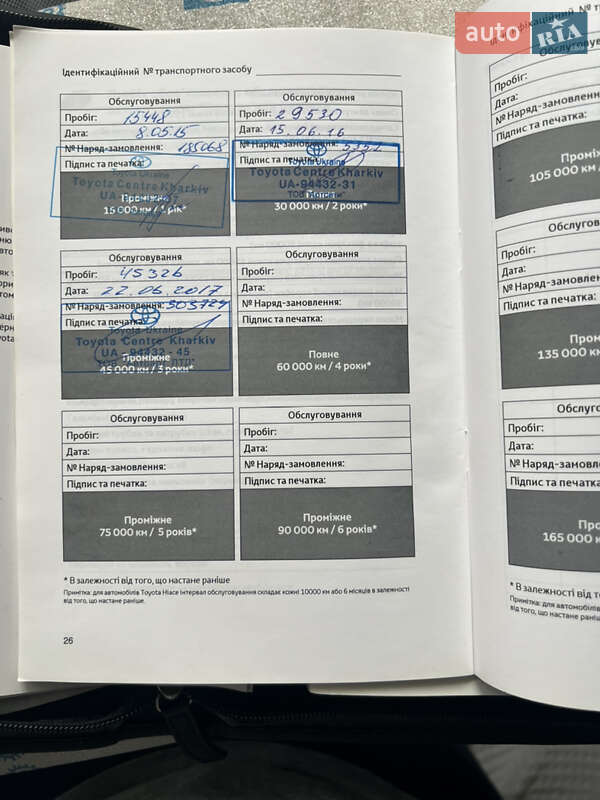 auto RIA
Ідентифікаційний № транспортного засобу
Обслуговування
Пробіг: 15448
Дата: 8.05.15
№ Наряд-замовлення: 185068
Підпис та печатка:
Toyota Ukraine
Toyota Centre Kharkiv
Проміжне
15 000 км / 1 рік*
Обслуговування
Пробіг: 29530
Дата: 15.06.16
№ Наряд-замовлення:
Підпис та печатка:
Toyota Ukraine
Toyota Centre Kharkiv
UA-94432-31
30 000 км / 2 роки*
Обслуговування
Пробіг: 45326
Дата: 22.06.2017
№ Наряд-замовлення: 303729
Підпис та печатка:
Toyota Ukraine
Toyota Centre Kharkiv
UA-94432-45
Проміжне
45 000 км / 3 роки*
Обслуговування
Пробіг:
Дата:
№ Наряд-замовлення:
Підпис та печатка:
Повне
60 000 км / 4 роки*
Обслуговування
Пробіг:
Дата:
№ Наряд-замовлення:
Підпис та печатка:
Проміжне
75 000 км / 5 років*
Обслуговування
Пробіг:
Дата:
№ Наряд-замовлення:
Підпис та печатка:
Проміжне
90 000 км / 6 років*
* В залежності від того, що настане раніше
Примітка: для автомобілів Toyota Hiace інтервал обслуговування складає кожні 10000 км або 6 місяців в залежності
від того, що настане раніше.
26
Пробіг:
Дата:
№ Наряд-замовлення
Підпис та печатка:
105 000 км
Пробіг:
Дата:
№ Наряд-замовлення
Підпис та печатка:
135 000 км
Пробіг:
Дата:
№ Наряд-замовлення
Підпис та печатка:
165 000 км
* В залежності від
Примітка: для автомобілів
від того, що настане